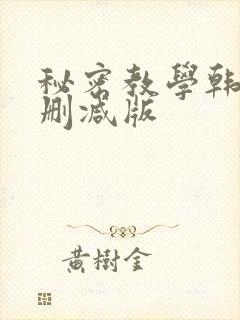 秘密教學韩
删减版
黄樹金